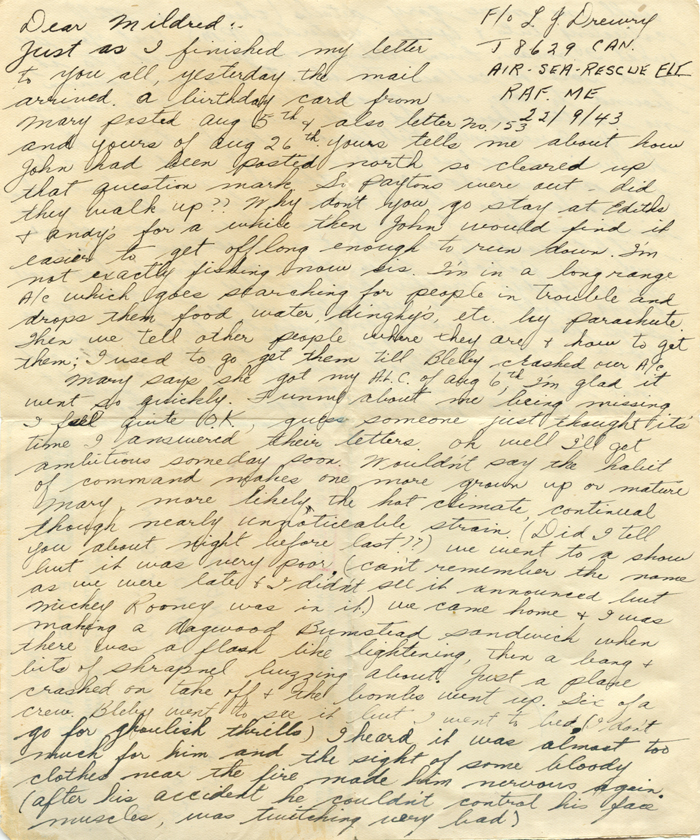 F/o L J Drewry
J 8629 CAN.
AIR-SEA-RESCUE FLT
RAF. ME
22/9/43
Dear Mildred:-
Just as I finished my letter
to you all, yesterday the mail
arrived. a birthday card from
Mary posted aug 5th & also letter No. 153
and yours of aug 26th. yours tells me about how
John had been posted north so cleared up
that question mark. So Paytons were out - did
they walk up?? Why don't you go stay at Ediths
& Andy's for a while then John would find it
easier to get off long enough to run down. I'm
not exactly fishing now sis. I'm in a long range
A/c which goes searching for people in trouble and
drops them food, water, dinghys, etc. by parachute.
Then we tell other people where they are & how to get
them; I used to go get them till Bleby crashed our A/c.
Mary says she got my A.L.C. of aug 6th I'm glad it
went so quickly. Funny about me being missing
I feel quite O.K., guess someone just thought its
time I answered their letters. oh well I'll get
ambitious someday soon. Wouldn't say the habit
of command makes one more grown up or mature
Mary, more likely the hot climate, continual
though nearly unnoticeable strain. (Did I tell
you about night before last??) we went to a show
but it was very poor. (can't remember the name
as we were late & I didn't see it announced but
Mickey Rooney was in it) we came home & I was
making a Dagwood Bumstead sandwich when
there was a flash like lightening, then a bang &
bits of shrapnel buzzing about. Just a plane
crashed on take off & the bombs went up. Six of a
crew. Bleby went to see it but I went to bed (I don't
go for ghoulish thrills) I heard it was almost too
much for him and the sight of some bloody
clothes near the fire made him nervous again.
(after his accident he couldn't control his face
muscles, was twitching very bad)